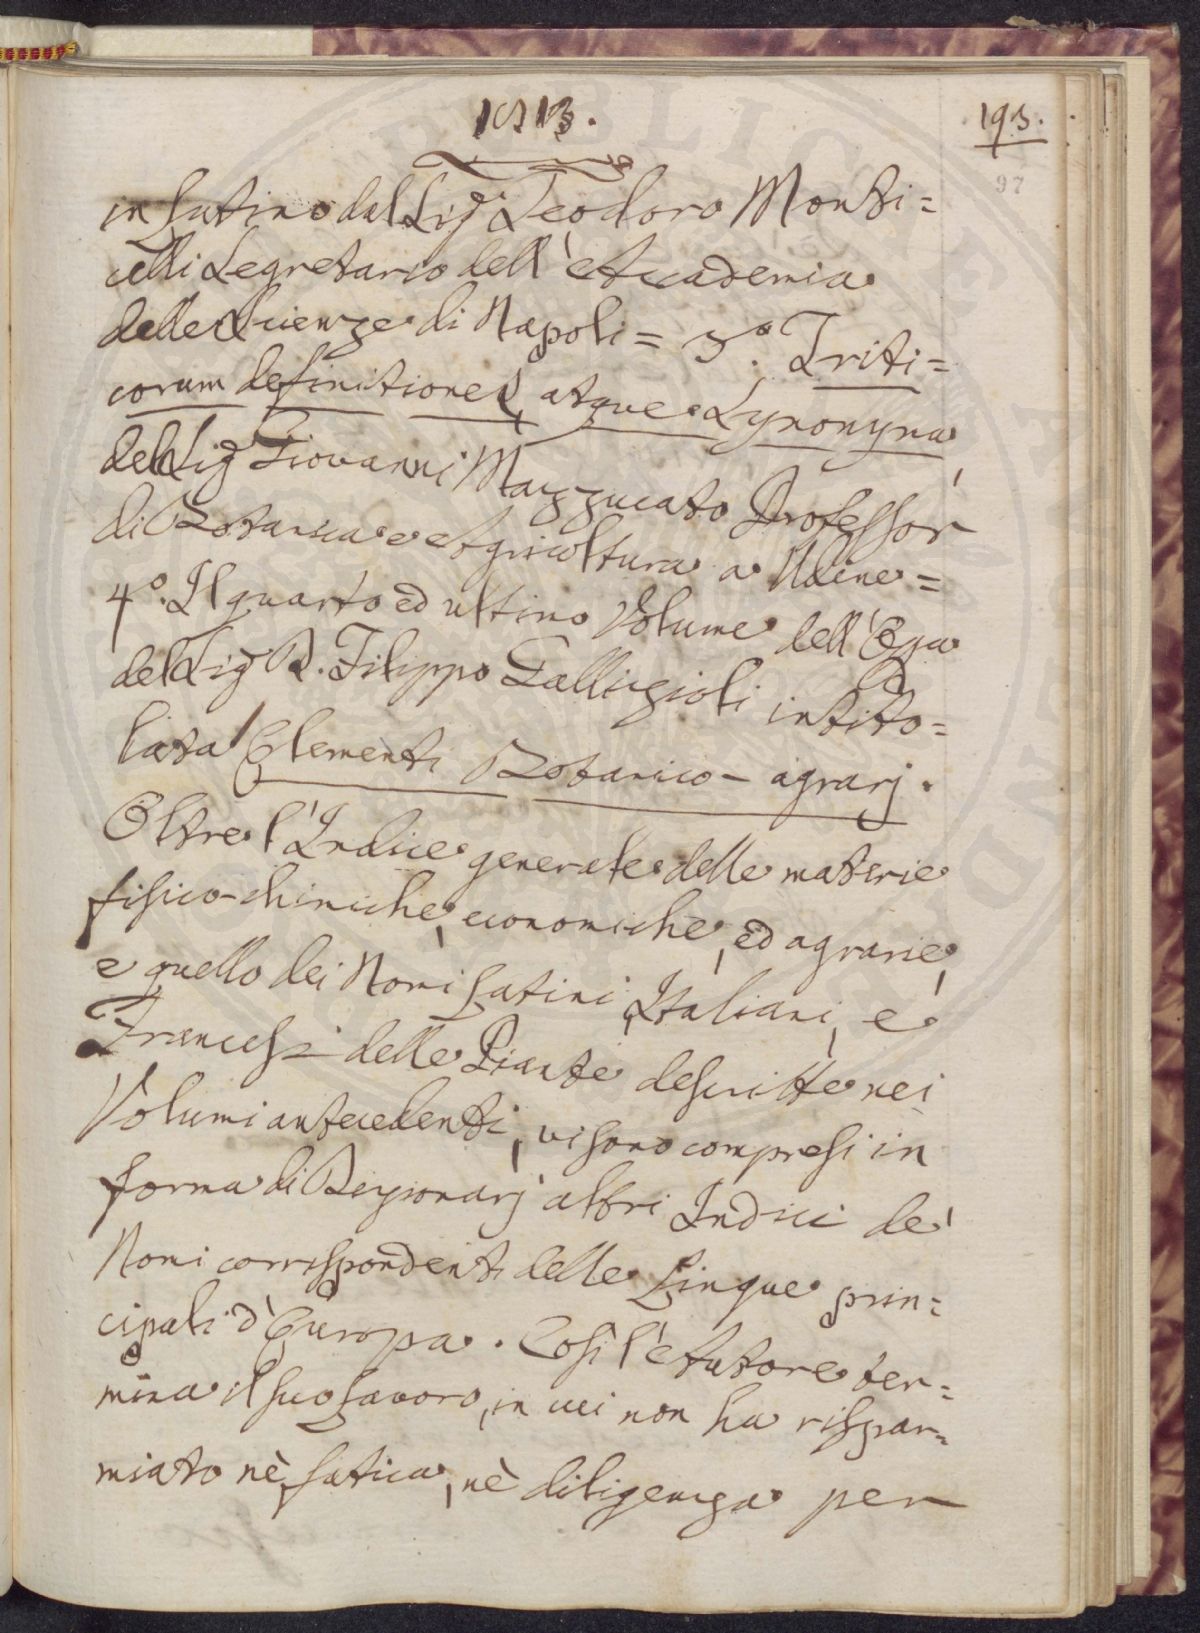 1813.
193.
97
in Latino dal Sig.r Teodoro Monti=
celli Segretario dell'Accademia
delle Scienze di Napoli = 3.o Triti=
corum definitiones, atque Synonyma,
del Sig.r Giovanni Mazzucato Professor
di Botanica e Agricoltura a Udine =
4.o Il quarto ed ultimo Volume dell'Opera
del Sig.r D. Filippo Gallizioli intito=
lata Elementi Botanico-agrarj.
Oltre l'Indice generale delle materie
fisico-chimiche, economiche, ed agrarie,
e quello dei Nomi Latini, Italiani, e
Francesi delle Piante descritte nei
Volumi antecedenti, vi sono compresi in
forma di Dezionarj altri Indici de'
Nomi corrispondenti delle Lingue prin=
cipali d'Europa. Così l'Autore ter=
mina il suo Lavoro, in cui non ha rispar=
miato nè fatica, nè diligenza per